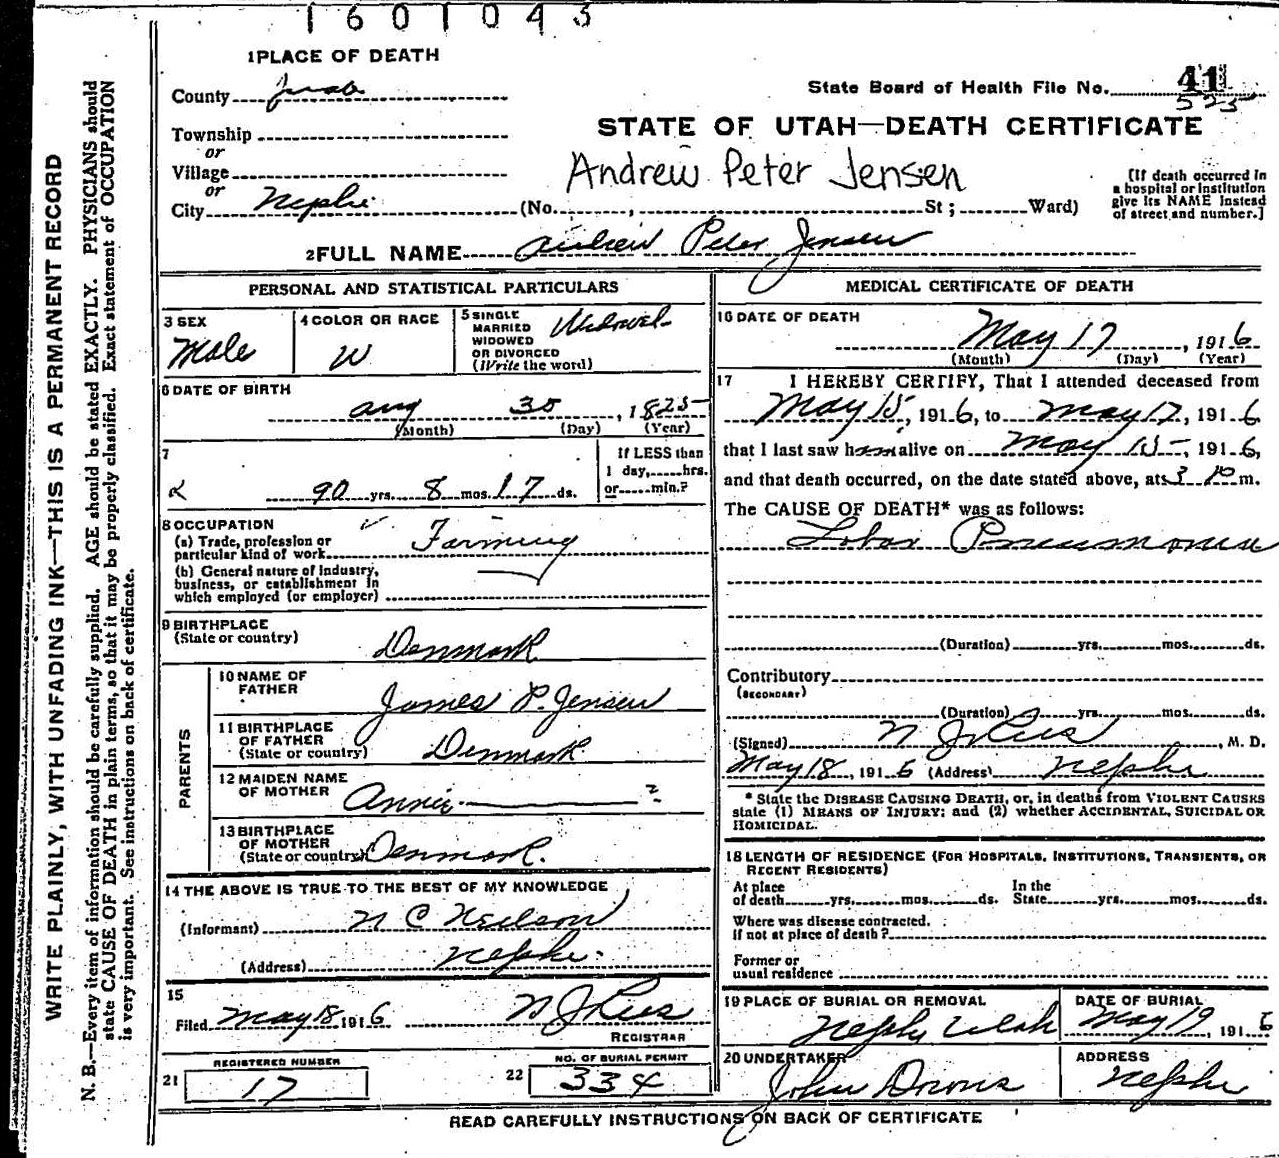 1601043
1 PLACE OF DEATH
County Juab
State Board of Health File No. 41
525
STATE OF UTAH—DEATH CERTIFICATE
Township
or
Village
or
City Nephi (No. , St ; Ward)
Andrew Peter Jensen
[If death occurred in
a hospital or institution
give its NAME instead
of street and number.]
2 FULL NAME Andrew Peter Jensen
PERSONAL AND STATISTICAL PARTICULARS
3 SEX
Male
4 COLOR OR RACE
W
5 SINGLE
MARRIED
WIDOWED
OR DIVORCED
(Write the word)
Widowed
6 DATE OF BIRTH
Aug 30, 1825
(Month) (Day) (Year)
7
90 yrs. 8 mos. 17 ds.
If LESS than
1 day, hrs.
or min.?
8 OCCUPATION
(a) Trade, profession or
particular kind of work Farming
(b) General nature of industry,
business, or establishment in
which employed (or employer)
9 BIRTHPLACE
(State or country)
Denmark
PARENTS
10 NAME OF
FATHER
James P. Jensen
11 BIRTHPLACE
OF FATHER
(State or country) Denmark
12 MAIDEN NAME
OF MOTHER
Annie ?
13 BIRTHPLACE
OF MOTHER
(State or country) Denmark.
14 THE ABOVE IS TRUE TO THE BEST OF MY KNOWLEDGE
(Informant) N C Neilson
(Address) Nephi.
15
Filed May 18 1916 REGISTRAR
REGISTERED NUMBER
21 17
NO. OF BURIAL PERMIT
22 334
MEDICAL CERTIFICATE OF DEATH
16 DATE OF DEATH
May 17, 1916
(Month) (Day) (Year)
17 I HEREBY CERTIFY, That I attended deceased from
May 15, 1916, to May 17, 1916
that I last saw him alive on May 15, 1916,
and that death occurred, on the date stated above, at 3 m.
The CAUSE OF DEATH* was as follows:
Lobar Pneumonia
(Duration) yrs. mos. ds.
Contributory
(SECONDARY)
(Duration) yrs. mos. ds.
(Signed) , M. D.
May 18, 1916 (Address) Nephi
* State the DISEASE CAUSING DEATH, or, in deaths from VIOLENT CAUSES
state (1) MEANS OF INJURY; and (2) whether ACCIDENTAL, SUICIDAL OR
HOMICIDAL.
18 LENGTH OF RESIDENCE (FOR HOSPITALS, INSTITUTIONS, TRANSIENTS, OR
RECENT RESIDENTS)
At place
of death yrs. mos. ds.
In the
State yrs. mos. ds.
Where was disease contracted.
If not at place of death?
Former or
usual residence
19 PLACE OF BURIAL OR REMOVAL
Nephi Utah
DATE OF BURIAL
May 19, 1916
20 UNDERTAKER
John
ADDRESS
Nephi
READ CAREFULLY INSTRUCTIONS ON BACK OF CERTIFICATE
WRITE PLAINLY, WITH UNFADING INK—THIS IS A PERMANENT RECORD
N. B.—Every item of information should be carefully supplied. AGE should be stated EXACTLY. PHYSICIANS should
state CAUSE OF DEATH in plain terms, so that it may be properly classified. Exact statement of OCCUPATION
is very important. See instructions on back of certificate.